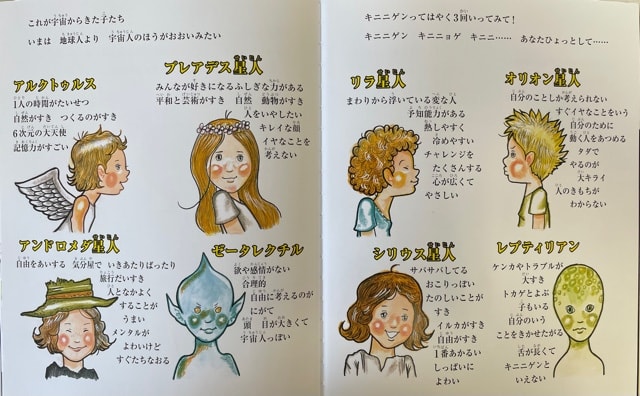 これが宇宙からきた子たち
いまは 地球人より 宇宙人のほうがおおいみたい
アルクトゥルス
1人の時間がたいせつ
自然がすき つくるのがすき
6次元の大天使
記憶力がすごい
プレアデス星人
みんなが好きになるふしぎな力がある
平和と芸術がすき 自然 動物がすき
人をいやしたい
キレイな顔
イヤなことを
考えない
アンドロメダ星人
自由をあいする 気分屋で いきあたりばったり
旅行だいすき
人となかよく
することが
うまい
メンタルが
よわいけど
すぐたちなおる
ゼータレクチル
欲や感情がない
合理的
自由に考えるのが
にがて
頭 目が大きくて
宇宙人っぽい
キニニゲンってはやく3回いってみて!
キニニゲン キニニョゲ キニニ…… あなたひょっとして……
リラ星人
まわりから浮いている変な人
予知能力がある
熱しやすく
冷めやすい
チャレンジを
たくさんする
心が広くて
やさしい
オリオン星人
自分のことしか考えられない
すぐイヤなことをいう
自分のために
動く人をあつめる
タダで
やるのが
大キライ
人のきもちが
わからない
シリウス星人
サバサバしてる
おこりっぽい
たのしいことが
すき
イルカがすき
自由がすき
1番あかるい
しっぱいに
よわい
レプティリアン
ケンカやトラブルが
大すき
トカゲとよぶ
子もいる
自分のいう
ことをきかせたがる
舌が長くて
キニニゲンと
いえない